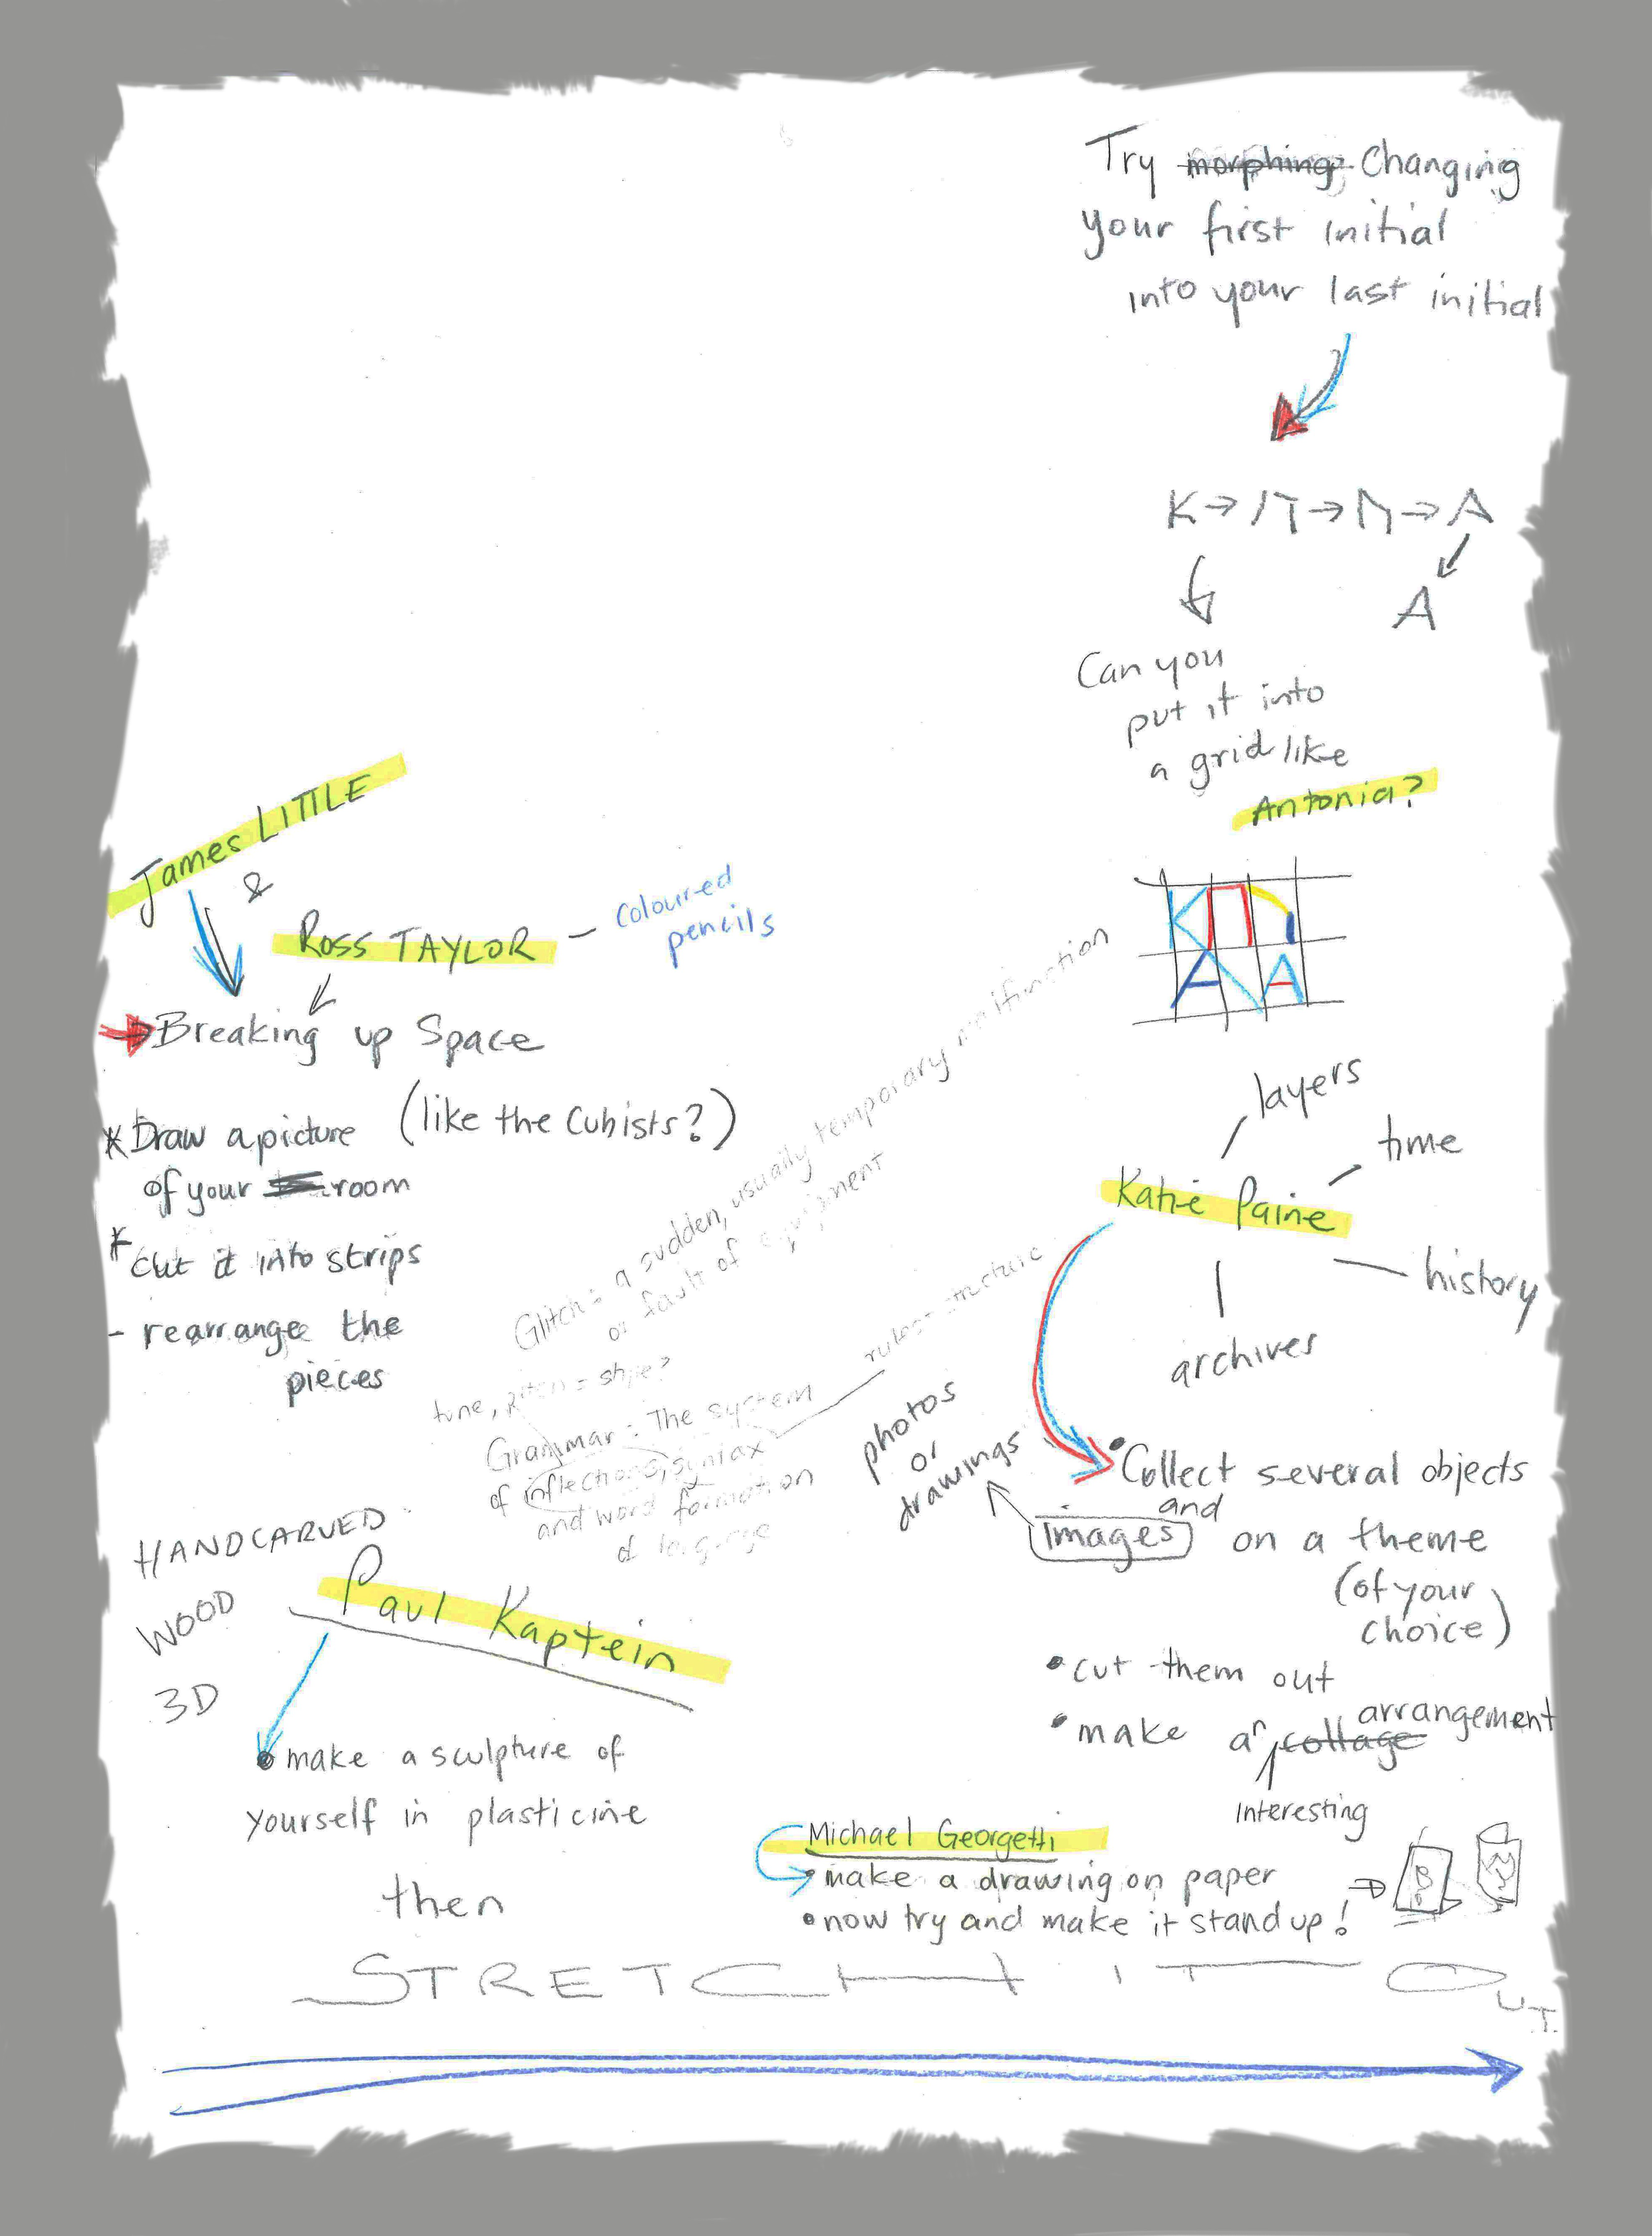 Try morphing Changing
your first initial
into your last initial
K → → → A
A
Can you
put it into
a grid like
Antonia?
James LITTLE
&
ROSS TAYLOR – coloured
pencils
Breaking up Space
(like the Cubists?)
* Draw a picture
of your room
* Cut it into strips
- rearrange the
pieces
Glitch = a sudden, usually temporary malfunction
or fault of equipment
tune, pitch = style?
rules = structure
Grammar: The system
of inflections, syntax
and word formation
of language
layers
time
Katie Paine
history
archives
photos
or
drawings
• Collect several objects
and
images on a theme
(of your
choice)
• cut them out
arrangement
• make an collage
interesting
HANDCARVED
WOOD
3D
Paul Kaptein
• make a sculpture of
yourself in plasticine
then
STRETCH IT OUT
Michael Georgetti
• make a drawing on paper
• now try and make it stand up!
B